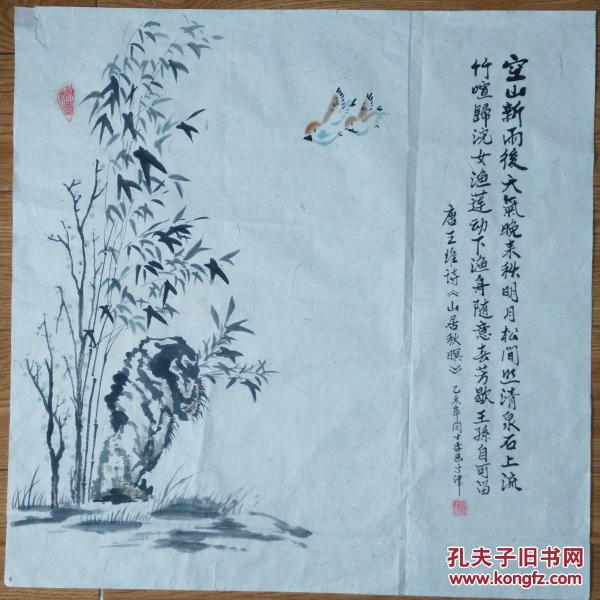 空山新雨後天氣晚来秋明月松间照清泉石上流
竹喧歸浣女渔莲动下渔舟随意春芳歇王孫自可留
唐王维诗《山居秋暝》
乙未年 于津
孔夫子旧书网
www.kongfz.com